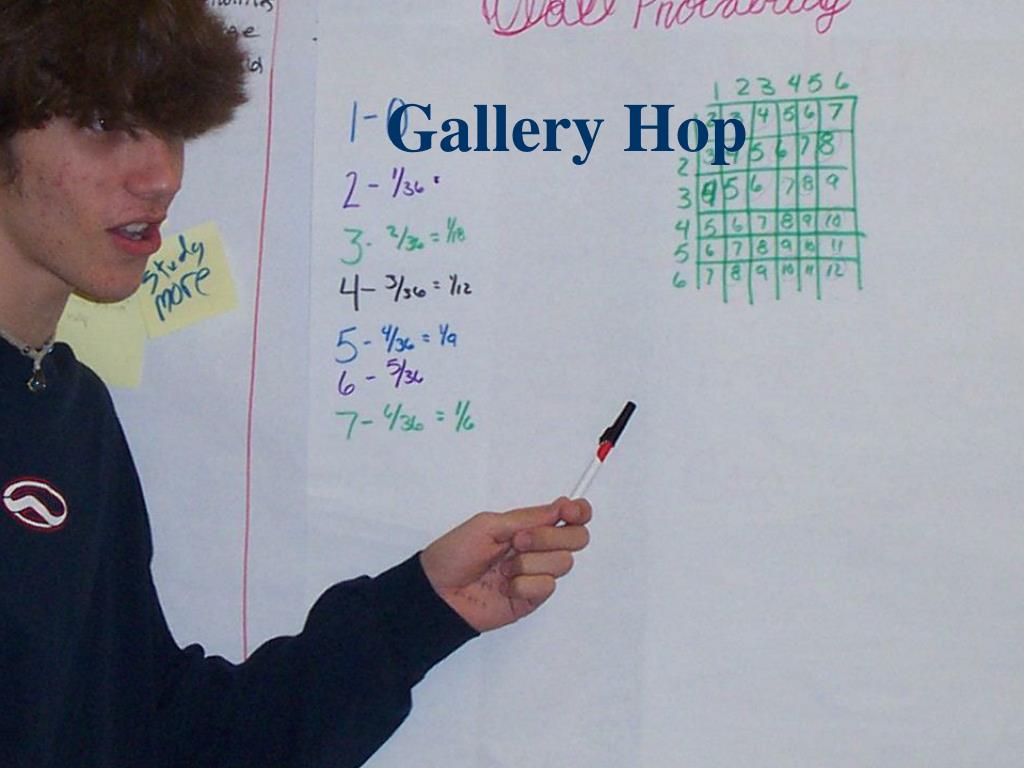 Probability
Gallery Hop
1-0
2 - 1/36
3 - 2/36 = 1/18
4 - 3/36 = 1/12
5 - 4/36 = 1/9
6 - 5/36
7 - 6/36 = 1/6
study
more
1 2 3 4 5 6
1 2 3 4 5 6 7
2 3 4 5 6 7 8
3 4 5 6 7 8 9
4 5 6 7 8 9 10
5 6 7 8 9 10 11
6 7 8 9 10 11 12